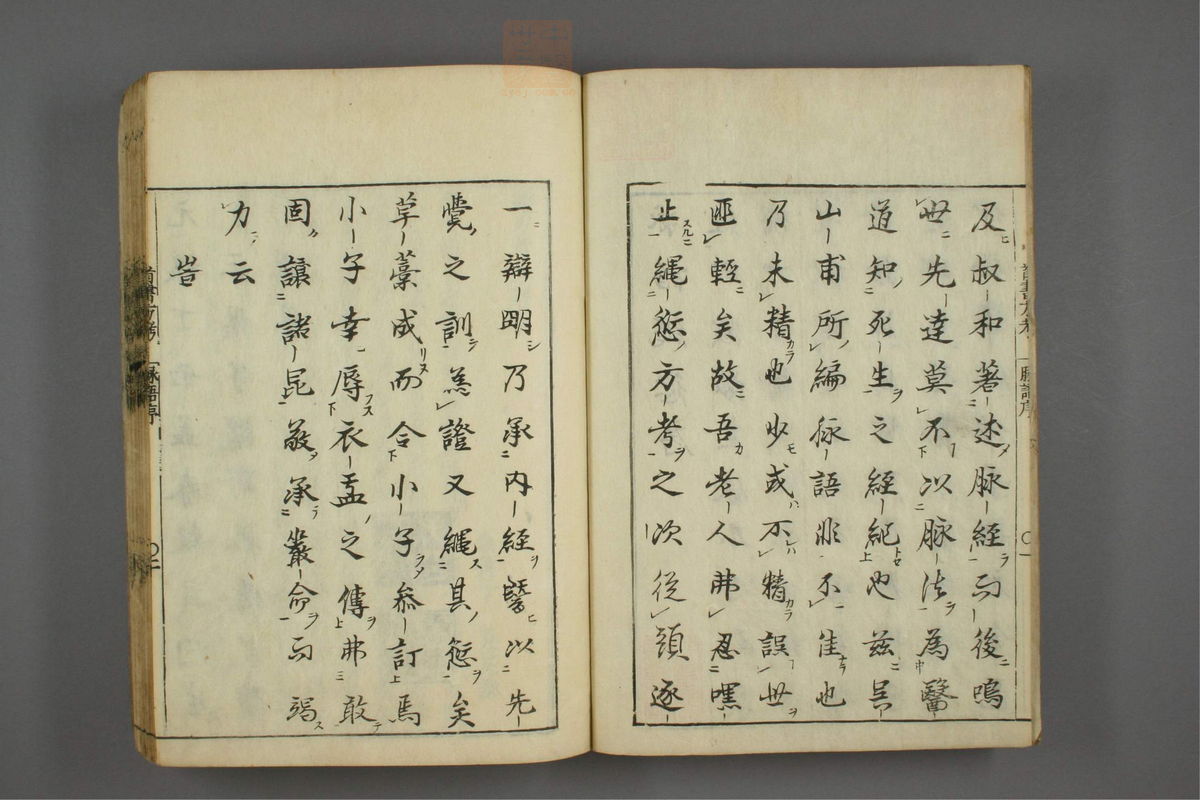 及叔和著述脉經而後鳴
世先達莫不以脉法為醫
道知死生之經紀也茲吳
山甫所編脉語非不佳也
乃未精也少或不精誤世
匪輕矣故吾老人弗忍嘿
止繩愆方考之次從頭逐
一辯明乃承内經譬以先
覺之訓為證又繩其愆矣
草藁成而令小子叅訂焉
小子幸辱衣盂之傳弗敢
固讓諸昆敬承嚴命而竭
力云
旹